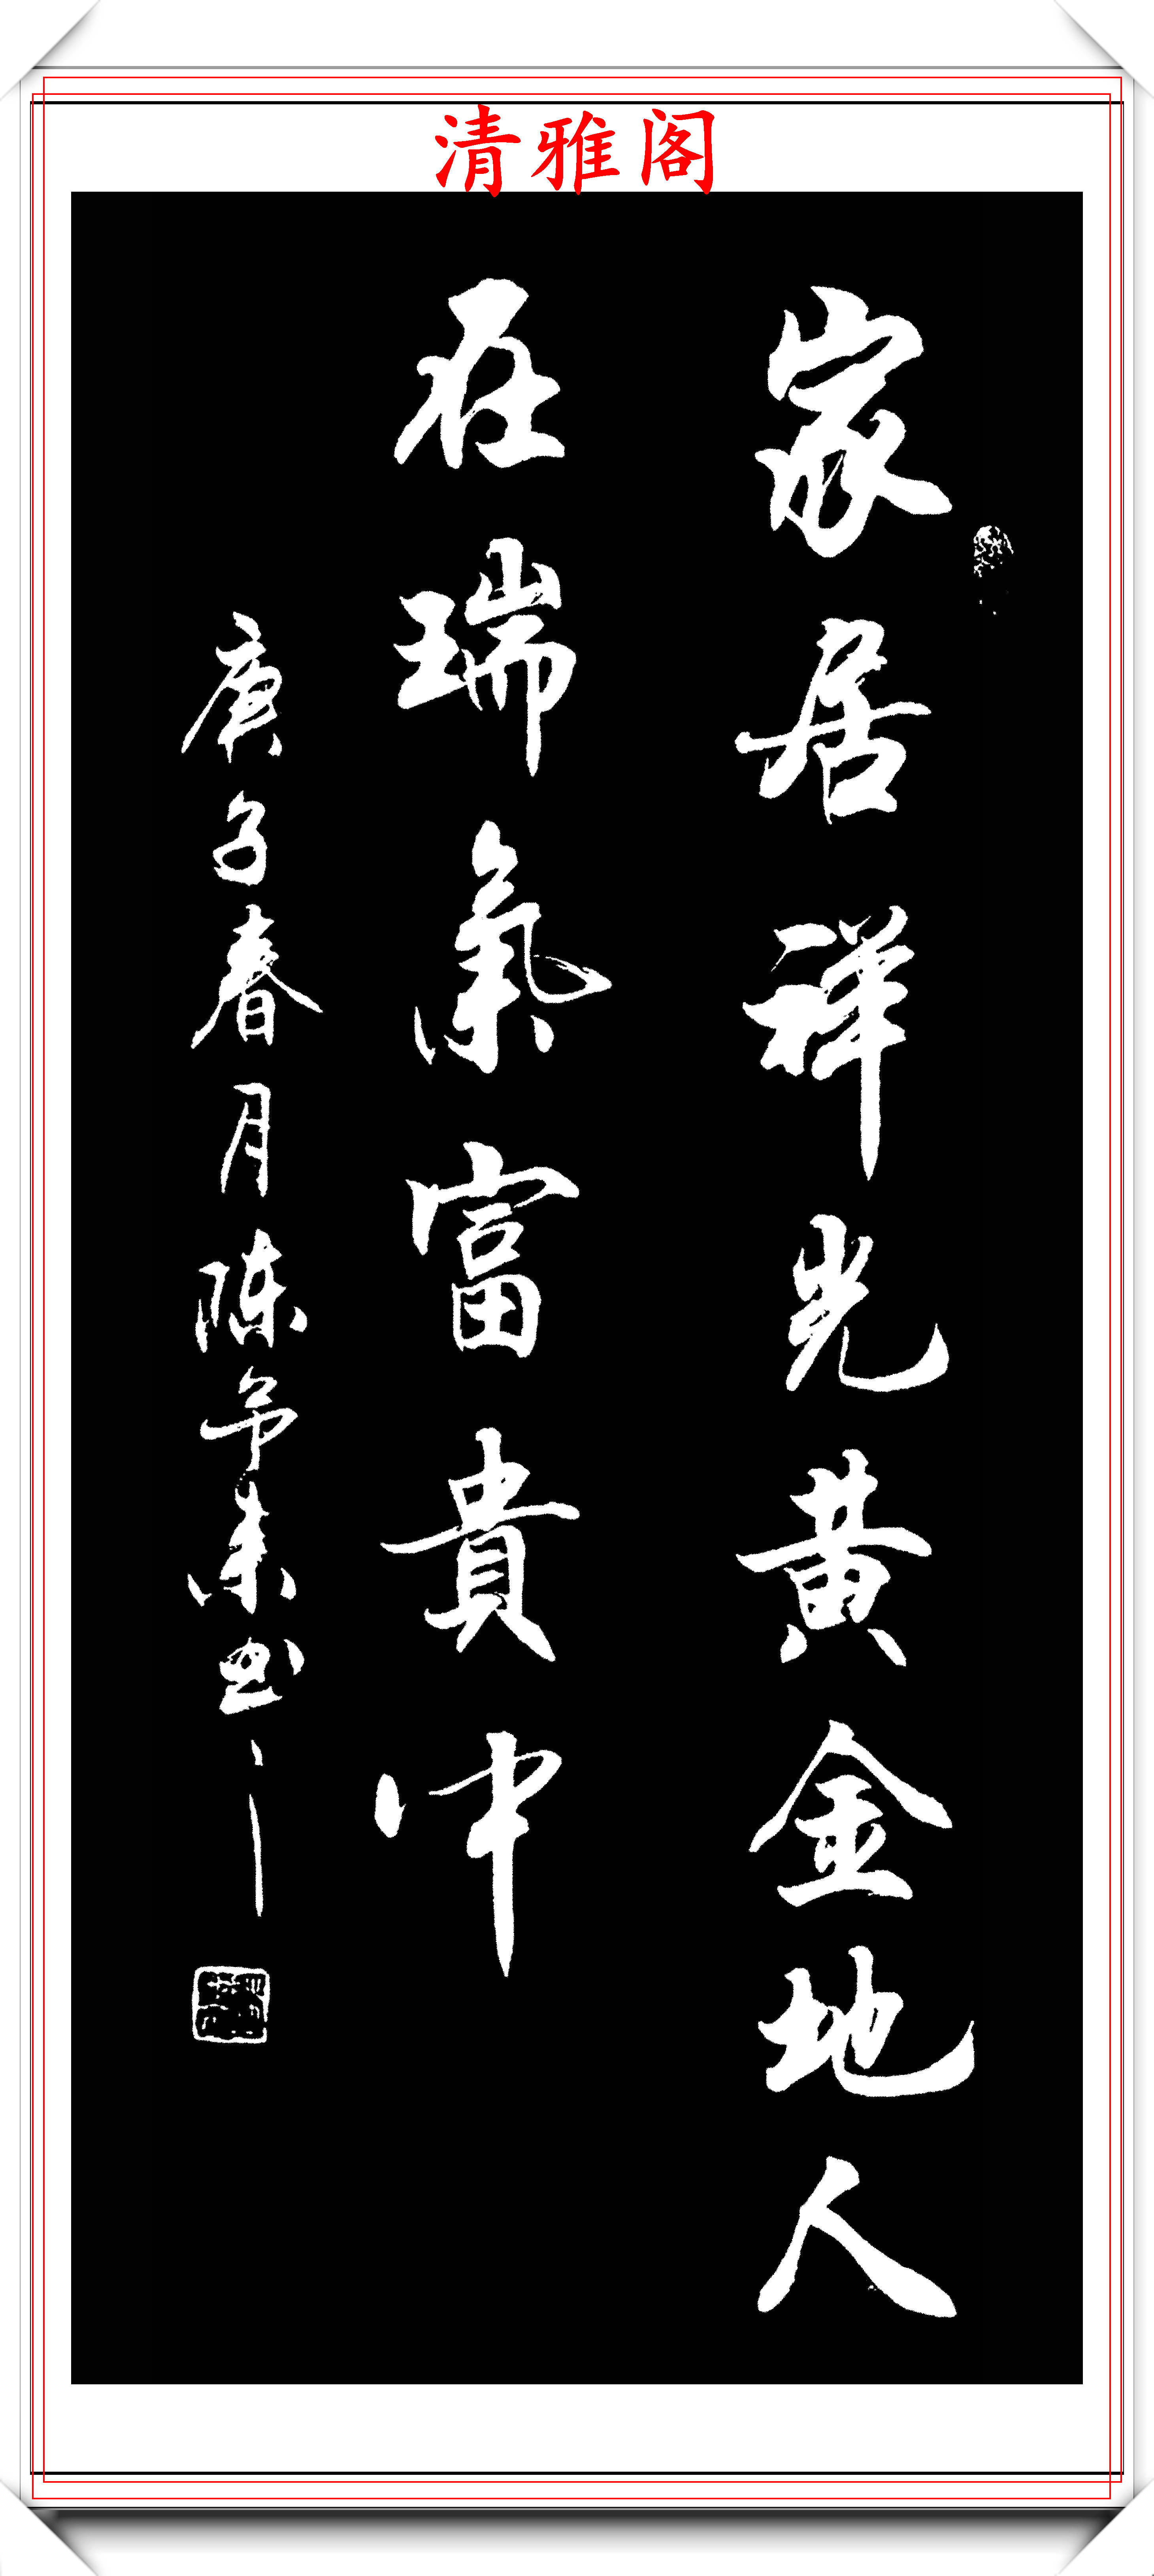 清雅阁
家居祥光黄金地人
在瑞氣富貴中
庚子春月陈争东书